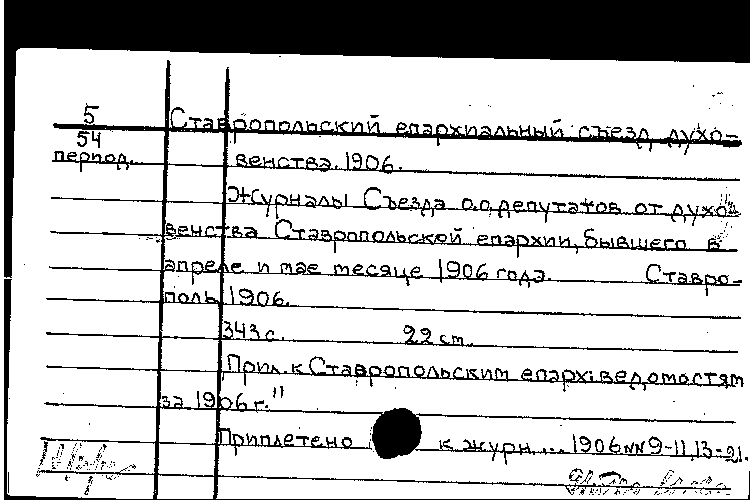 5
54
период.
Ставропольский епархиальный съезд духо-
венства. 1906.
Журналы Съезда о.о.депутатов от духо-
венства Ставропольской епархии, бывшего в
апреле и мае месяце 1906 года. Ставро-
поль, 1906.
343 с. 22 cm.
Прил. к Ставропольским епарх.ведомостям
за 1906 г."
Приплетено к журн.... 1906 NN 9-11,13-21.